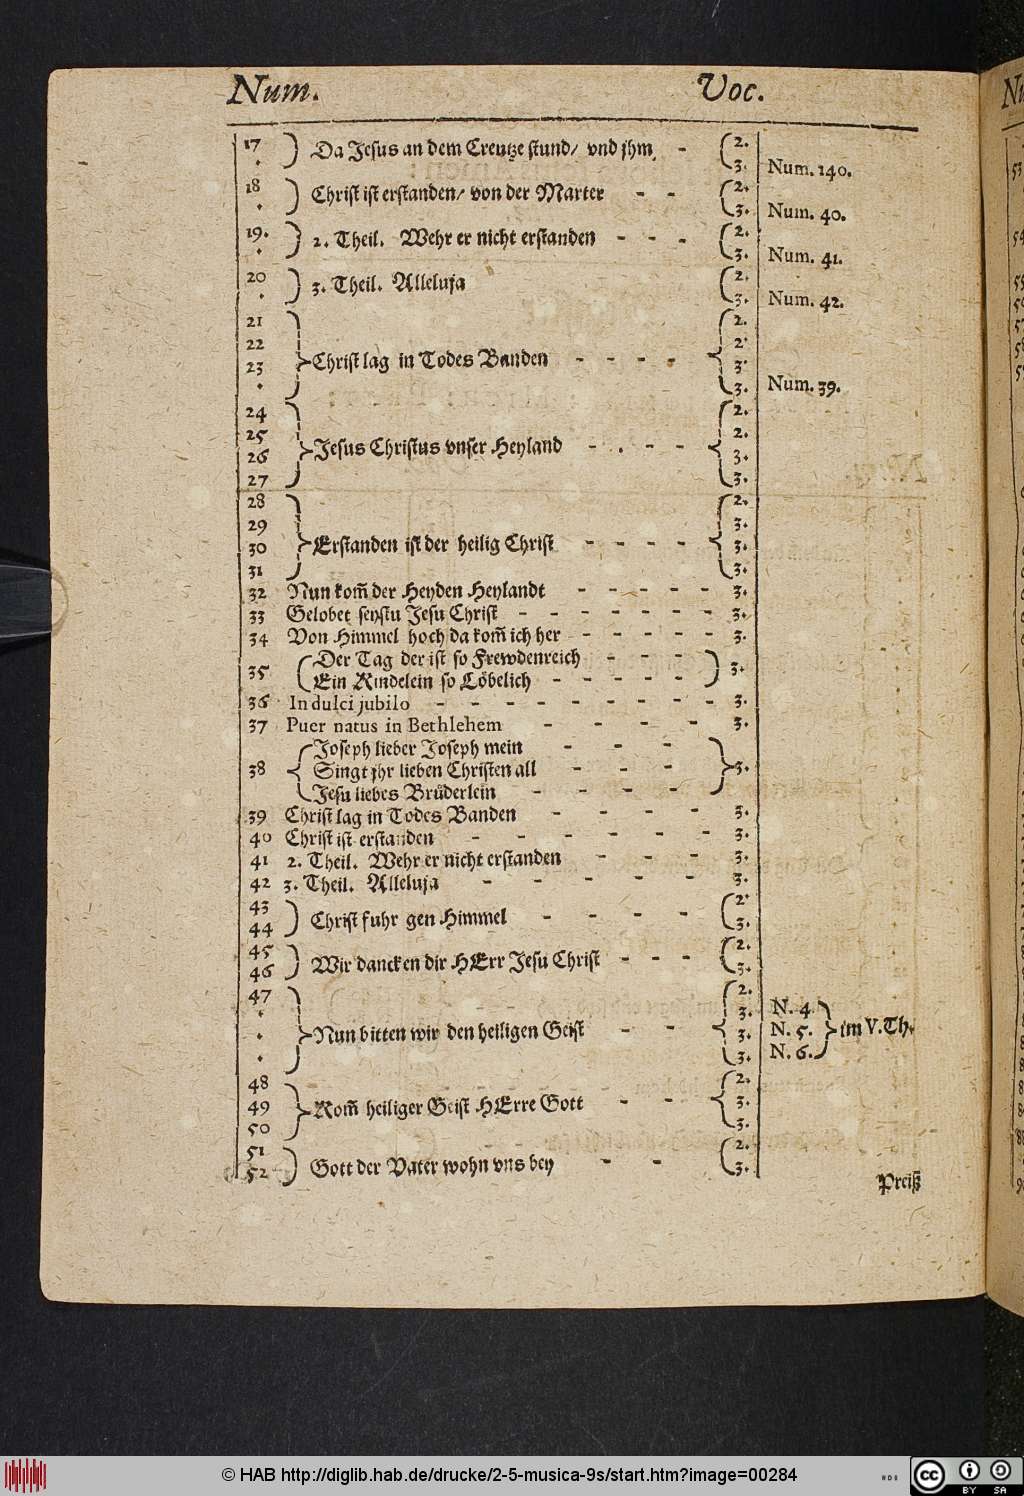 Num. Voc.
17 Da Jesus an dem Creutze stund/ vnd jhm - 2.
. 3. Num. 140.
18 Christ ist erstanden/ von der Marter - - 2.
. 3. Num. 40.
19. 2. Theil. Wehr er nicht erstanden - - - 2.
. 3. Num. 41.
20 3. Theil. Alleluja 2.
. 3. Num. 42.
21 2.
22 2.
23 Christ lag in Todes Banden - - - - 3.
. 3. Num. 39.
24 2.
25 2.
26 Jesus Christus vnser Heyland - . - - 3.
27 3.
28 2.
29 3.
30 Erstanden ist der heilig Christ - - - - 3.
31 3.
32 Nun kom̃ der Heyden Heylandt - - - - - 3.
33 Gelobet seystu Jesu Christ - - - - - - - 3.
34 Von Himmel hoch da kom̃ ich her - - - - - 3.
35 Der Tag der ist so Frewdenreich - - - 3.
Ein Kindelein so Löbelich - - - - -
36 In dulci jubilo - - - - - - - - - 3.
37 Puer natus in Bethlehem - - - - 3.
Joseph lieber Joseph mein - - -
38 Singt jhr lieben Christen all - - - 3.
Jesu liebes Brüderlein - - - -
39 Christ lag in Todes Banden - - - - 3.
40 Christ ist erstanden - - - - - 3.
41 2. Theil. Wehr er nicht erstanden - - - 3.
42 3. Theil. Alleluja - - - - - 3.
43 2.
44 Christ fuhr gen Himmel - - - - 3.
45 2.
46 Wir dancken dir HErr Jesu Christ - - - 3.
47 2.
. 3. N. 4.
. Nun bitten wir den heiligen Geist - - 3. N. 5. im V. Th.
. 3. N. 6.
48 2.
49 Kom̃ heiliger Geist HErre Gott - - 3.
50 3.
51 2.
52 Gott der Vater wohn vns bey - - 3.
Preiß
© HAB http://diglib.hab.de/drucke/2-5-musica-9s/start.htm?image=00284
cc BY SA